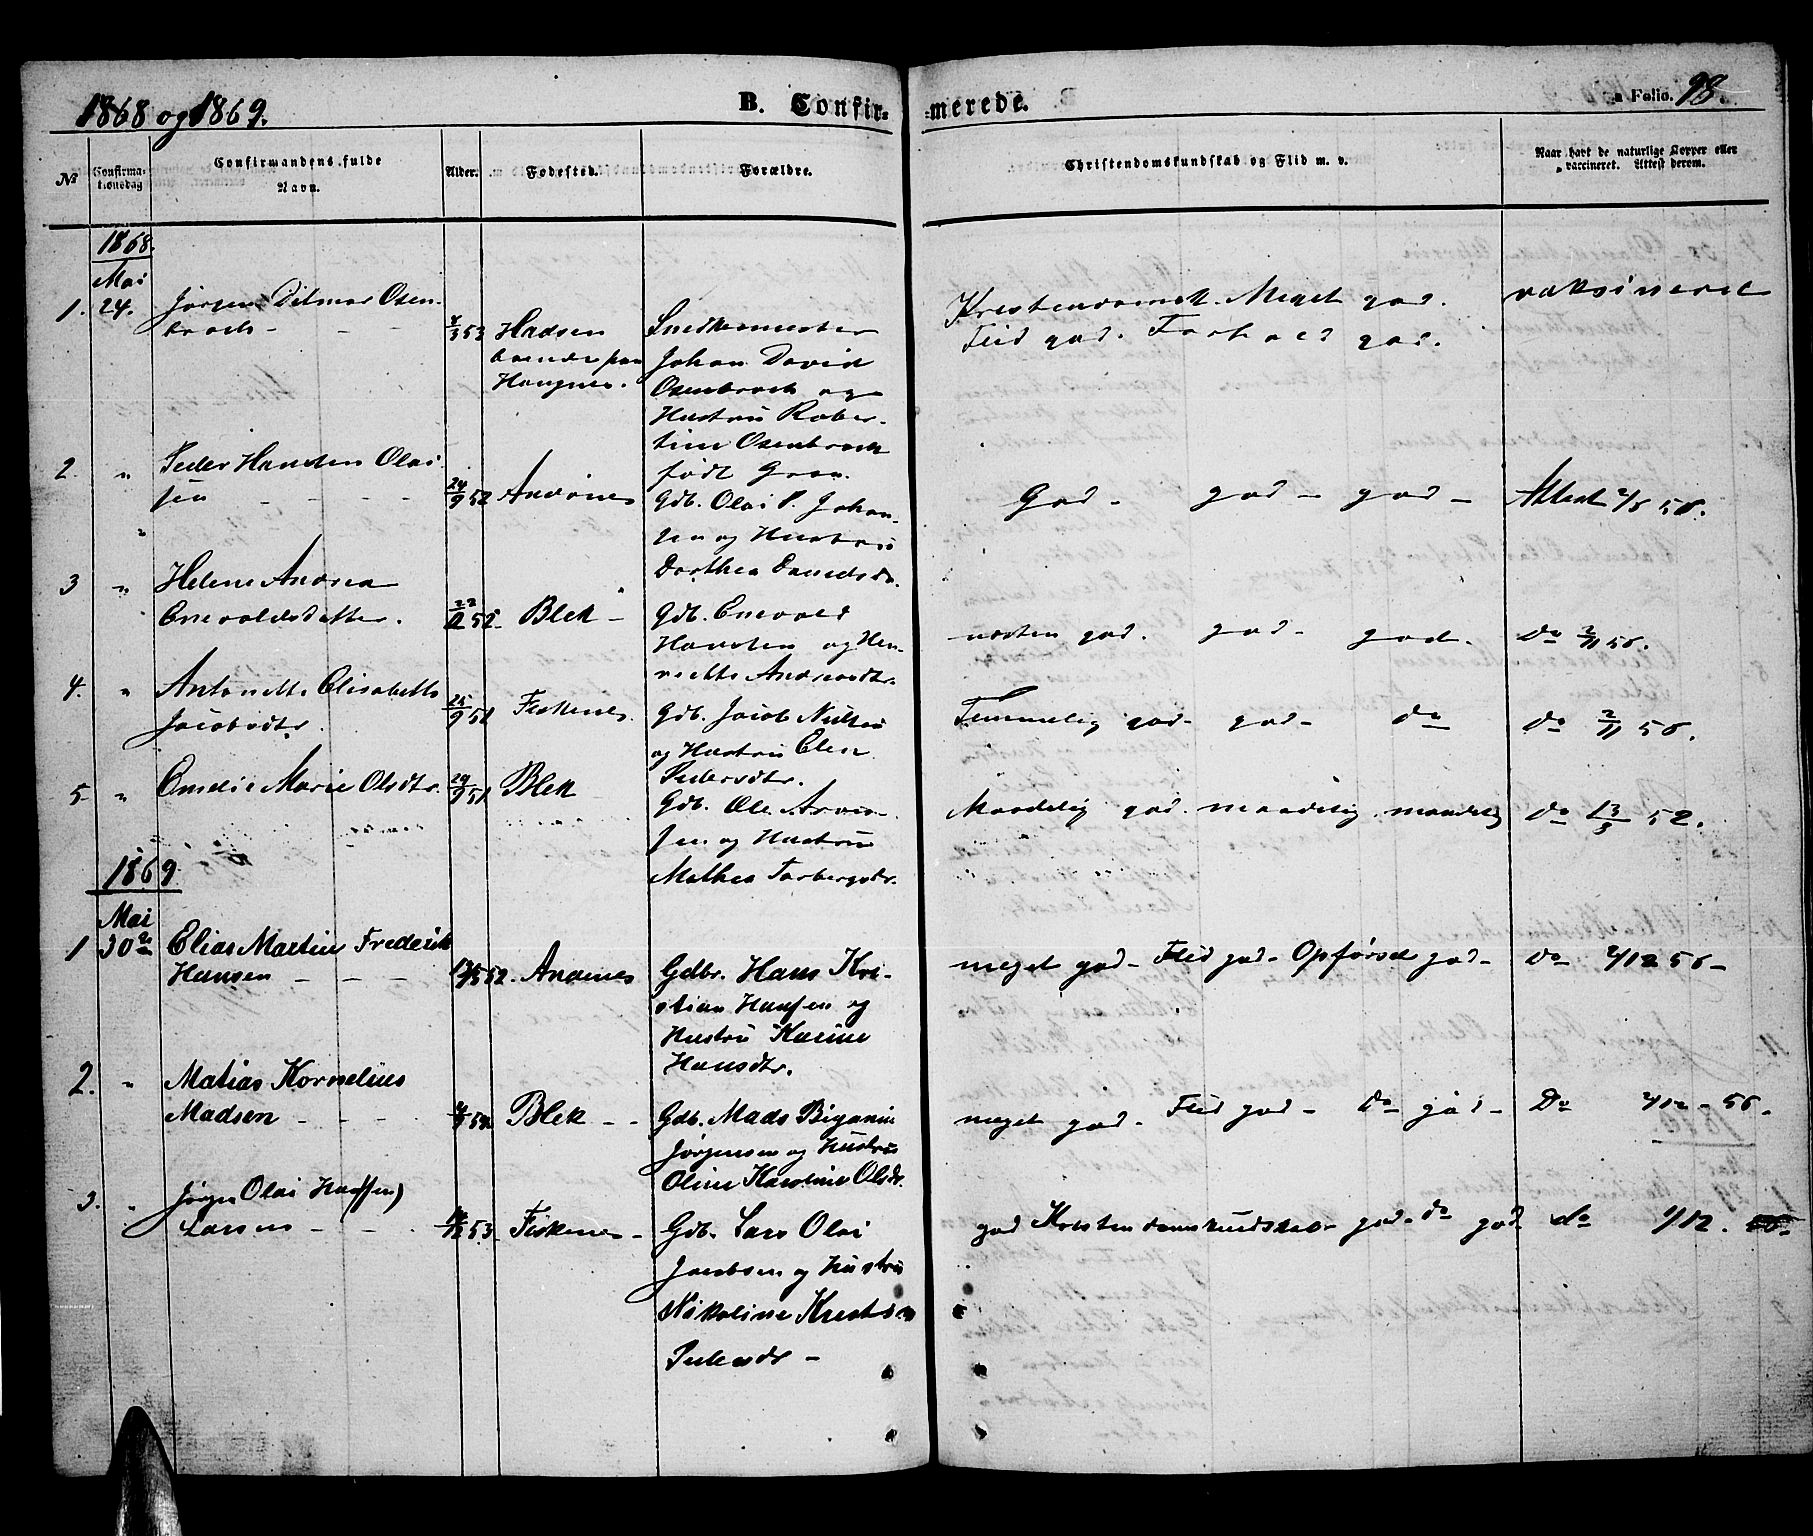 1868 og 1869.
B. Confir-
-merede.
Folio. 98.
No
Confirma-
tionsdag
Confirmandens fulde
Navn.
Alder.
Fødested.
Forældre.
Christendomskundskab og Flid m. v.
Naar havt de naturlige Kopper eller
vaccineret. Attest derom.
1868.
Mai
1. 24. Jørgen Ditmar Osen-
broch - - -
4/3 53 Hadsen
boende paa
Haugnes.
Snedkermester
Johan David
Osenbroch og
Hustru Rober-
tine Osenbroch
født Graa.
Kristendomsk. Meget god.
Flid god. Forhold god.
vaksineret
2. " Peder Hansten Olai
sen - - - -
24/9 52 Andønes
Gdb. Olai P. Johan-
sen og Hustru
Dorthea Danielsdr.
God - god - god -
Attest
3 " Helene Andrea
Enevoldsdatter.
52 Blek -
Gdb. Enevold
Hansten og Hen-
riette Andreasdtr.
næsten god. god - god.
do 2/11 56.
4. " Antonette Elisabeth
Jacobsdtr.
Fiskenes.
Gdb. Jacob Nilsen
og Hustru Elen
Pedersdtr.
Temmelig god - god - do
do 2/11 56.
5 " Emelie Marie Olsdtr.
29/9 51 Blek
Gdb. Ole Aron-
sen og Hustru
Mathea Torbergsdr.
Maadelig god. maadelig. maadelig
do 13/3 52.
1869.
Mai
1 30te Elias Martin Frederik
Hansen - - -
52. Andenes
Gdbr. Hans Kri-
stian Hansen og
Hustru Karine
Hansdtr.
meget god - Flid god - Opførsel god -
do 2/12 56 -
2. " Matias Kornelius
Madsen - - -
Blek - -
Gdb. Mads Biganin
Jørgensen og Hustru
Oline Karoline Olsdr.
meget god. Flid god - do god -
Do 2/12 - 56.
3. " Jørgen Olai Hanssen)
Larsen - - -
53. Fiskenes -
Gdb. Lars Olai
Jacobsen og Hustru
Nikoline Krestine
Pedersdr -
god Kristendomskundskab god - do god
do 1/12.